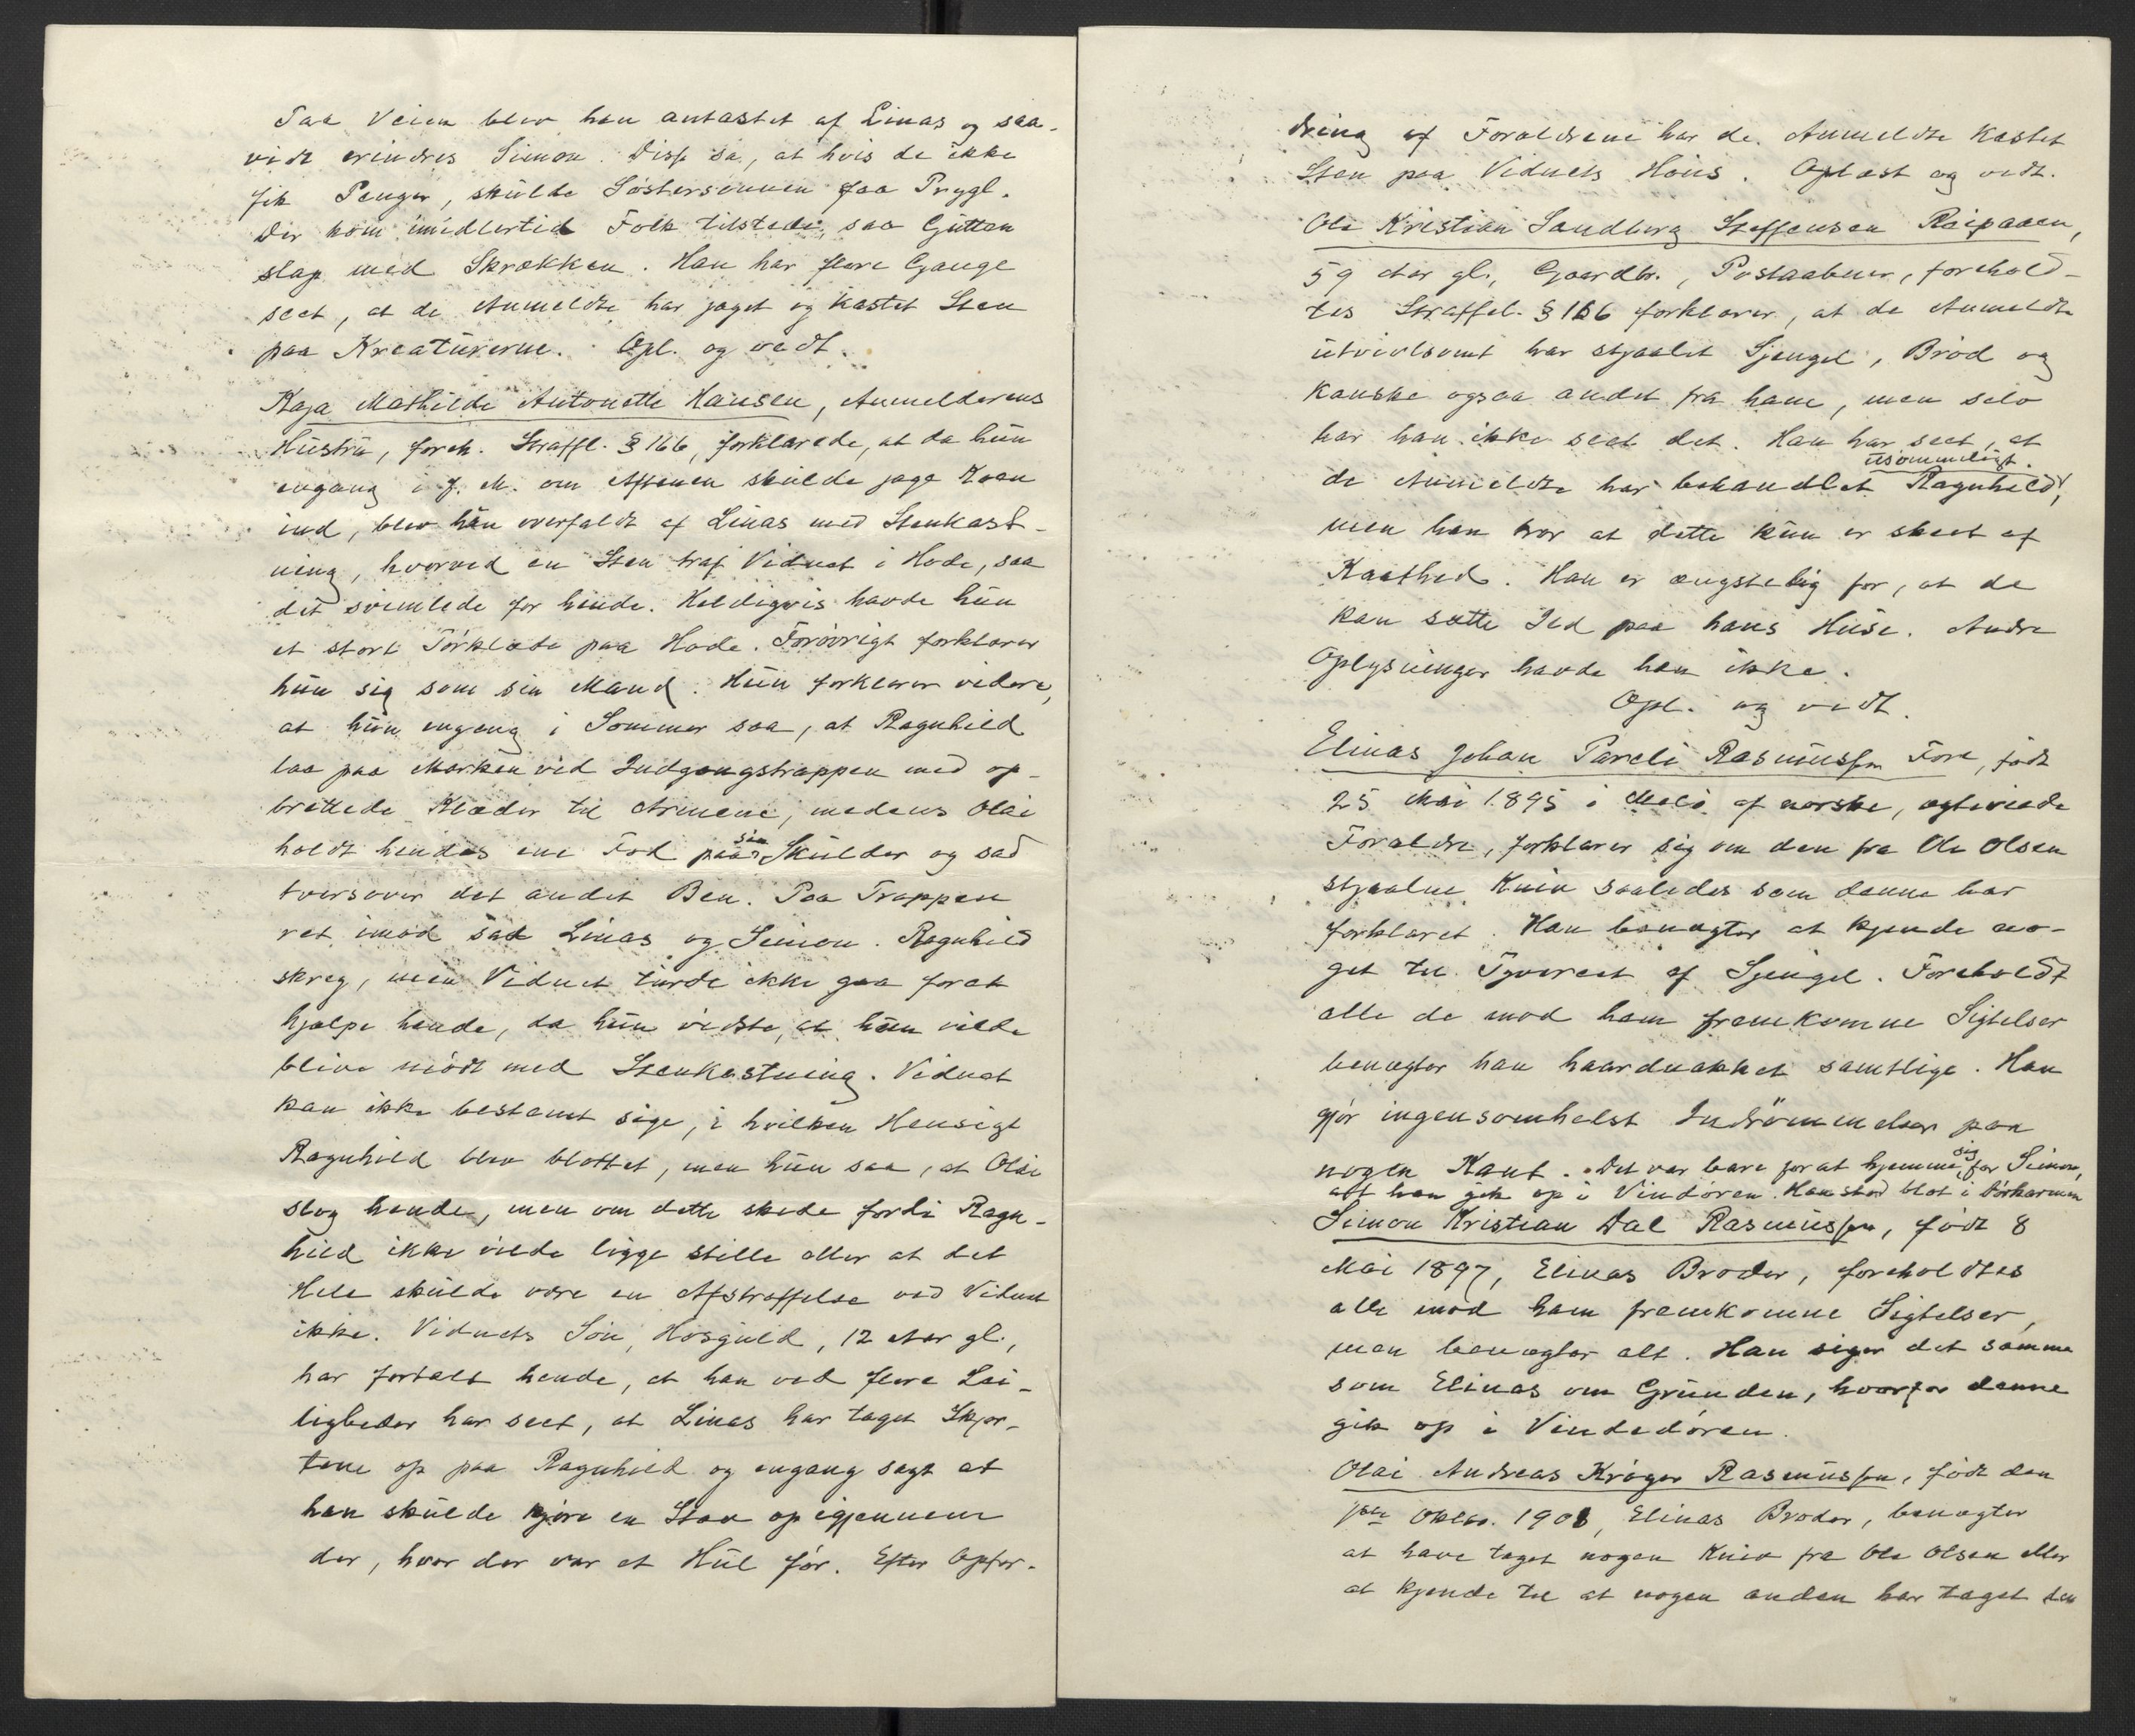 Paa Veien blev han antastet af Linas og saa-
vidt erindres Simon. Disse sa, at hvis de ikke
fik Penger, skulde Søstersønnen faa Prygl.
Der kom imidlertid Folk tilstede, saa Gutten
slap med Skrækken. Han har flere Gange
seet, at de Anmeldte har jaget og kastet Sten
paa Kreaturerne. Opl. og vedt.
Kaja Mathilde Antonette Hansen, Anmelderens
Hustru, foreh. Straffl. § 166, forklarede, at da hun
engang i f. M. om Aftenen skulde jage Koen
ind, blev hun overfaldt af Linas med Stenkast-
ning, hvorved en Sten traf Vidnet i Hode, saa
det svimlede for hende. Heldigvis havde hun
et stort Tørklæde paa Hode. Forøvrigt forklarer
hun sig som sin Mand. Hun forklarer videre,
at hun engang i Sommer saa, at Ragnhild
laa paa Marken ved Indgangstrappen med op-
brettede Klæder til Armene, medens Olai
holdt hendes ene Fod paa sin Skulder og sad
tversover det andet Ben. Paa Trappen
ret imod sad Linas og Simon. Ragnhild
skreg, men Vidnet turde ikke gaa forat
hjælpe hende, da hun vidste, at hun vilde
blive mødt med Stenkastning. Vidnet
kan ikke bestemt sige, i hvilken Hensigt
Ragnhild blev blottet, men hun saa, at Olai
slog hende, men om dette skede fordi Ragn-
hild ikke vilde ligge stille eller at det
Hele skulde være en Afstraffelse ved Vidnet
ikke. Vidnets Søn, Hosguld, 12 Aar gl.,
har fortalt hende, at han ved flere Lei-
ligheder har seet, at Linas har taget Skjør-
tene op paa Ragnhild og engang sagt at
han skulde kjøre en Stav op igjennem
der, hvor der var et Hul før. Efter Opfor-
dring af Forældrene har de Anmeldte kastet
Sten paa Vidnets Høns. Oplæst og vedt.
Ole Kristian Sandberg Steffensen Reipaaen,
59 Aar gl., Gaardbr., Postaabner, forehold-
tes Straffel. § 166 forklarer, at de Anmeldte
utvivlsomt har stjaalet Sjengel, Brød og
kanske ogsaa andet fra ham, men selv
har han ikke seet det. Han har seet, at
de Anmeldte har behandlet Ragnhild usømmeligt,
men han tror at dette kun er skeet af
Kaathed. Han er ængstelig for, at de
kan sætte Ild paa hans Huse. Andre
Oplysninger havde han ikke.
Opl. og vedt.
Elinas Johan Pareli Rasmussen Fore, født
25 Mai 1895 i Melø af norske, ægteviede
Forældre, forklarer sig om den fra Ole Olsen
stjaalne Kniv saaledes som denne har
forklaret. Han benægter at kjende no-
get til Tyveriet af Sjengel. Foreholdt
alle de mod ham fremkomne Sigtelser
benægter han haardnakket samtlige. Han
gjør ingensomhelst Indrømmelser paa
nogen Kant. Det var bare for at gjemme sig for Simon,
att han gik op i Vindøren. Han stod blot i Dørkarmen
Simon Kristian Dal Rasmussen, født 8
Mai 1897, Elinas Broder, foreholdtes
alle mod ham fremkomne Sigtelser,
men benægter alt. Han siger det samme
som Elinas om Grunden, hvorfor denne
gik op i Vindedøren.
Olai Andreas Krøger Rasmussen, født den
Oktbr. 1901, Elinas Broder, benægter
at have taget nogen Kniv fra Ole Olsen eller
at kjende til at nogen anden har taget den